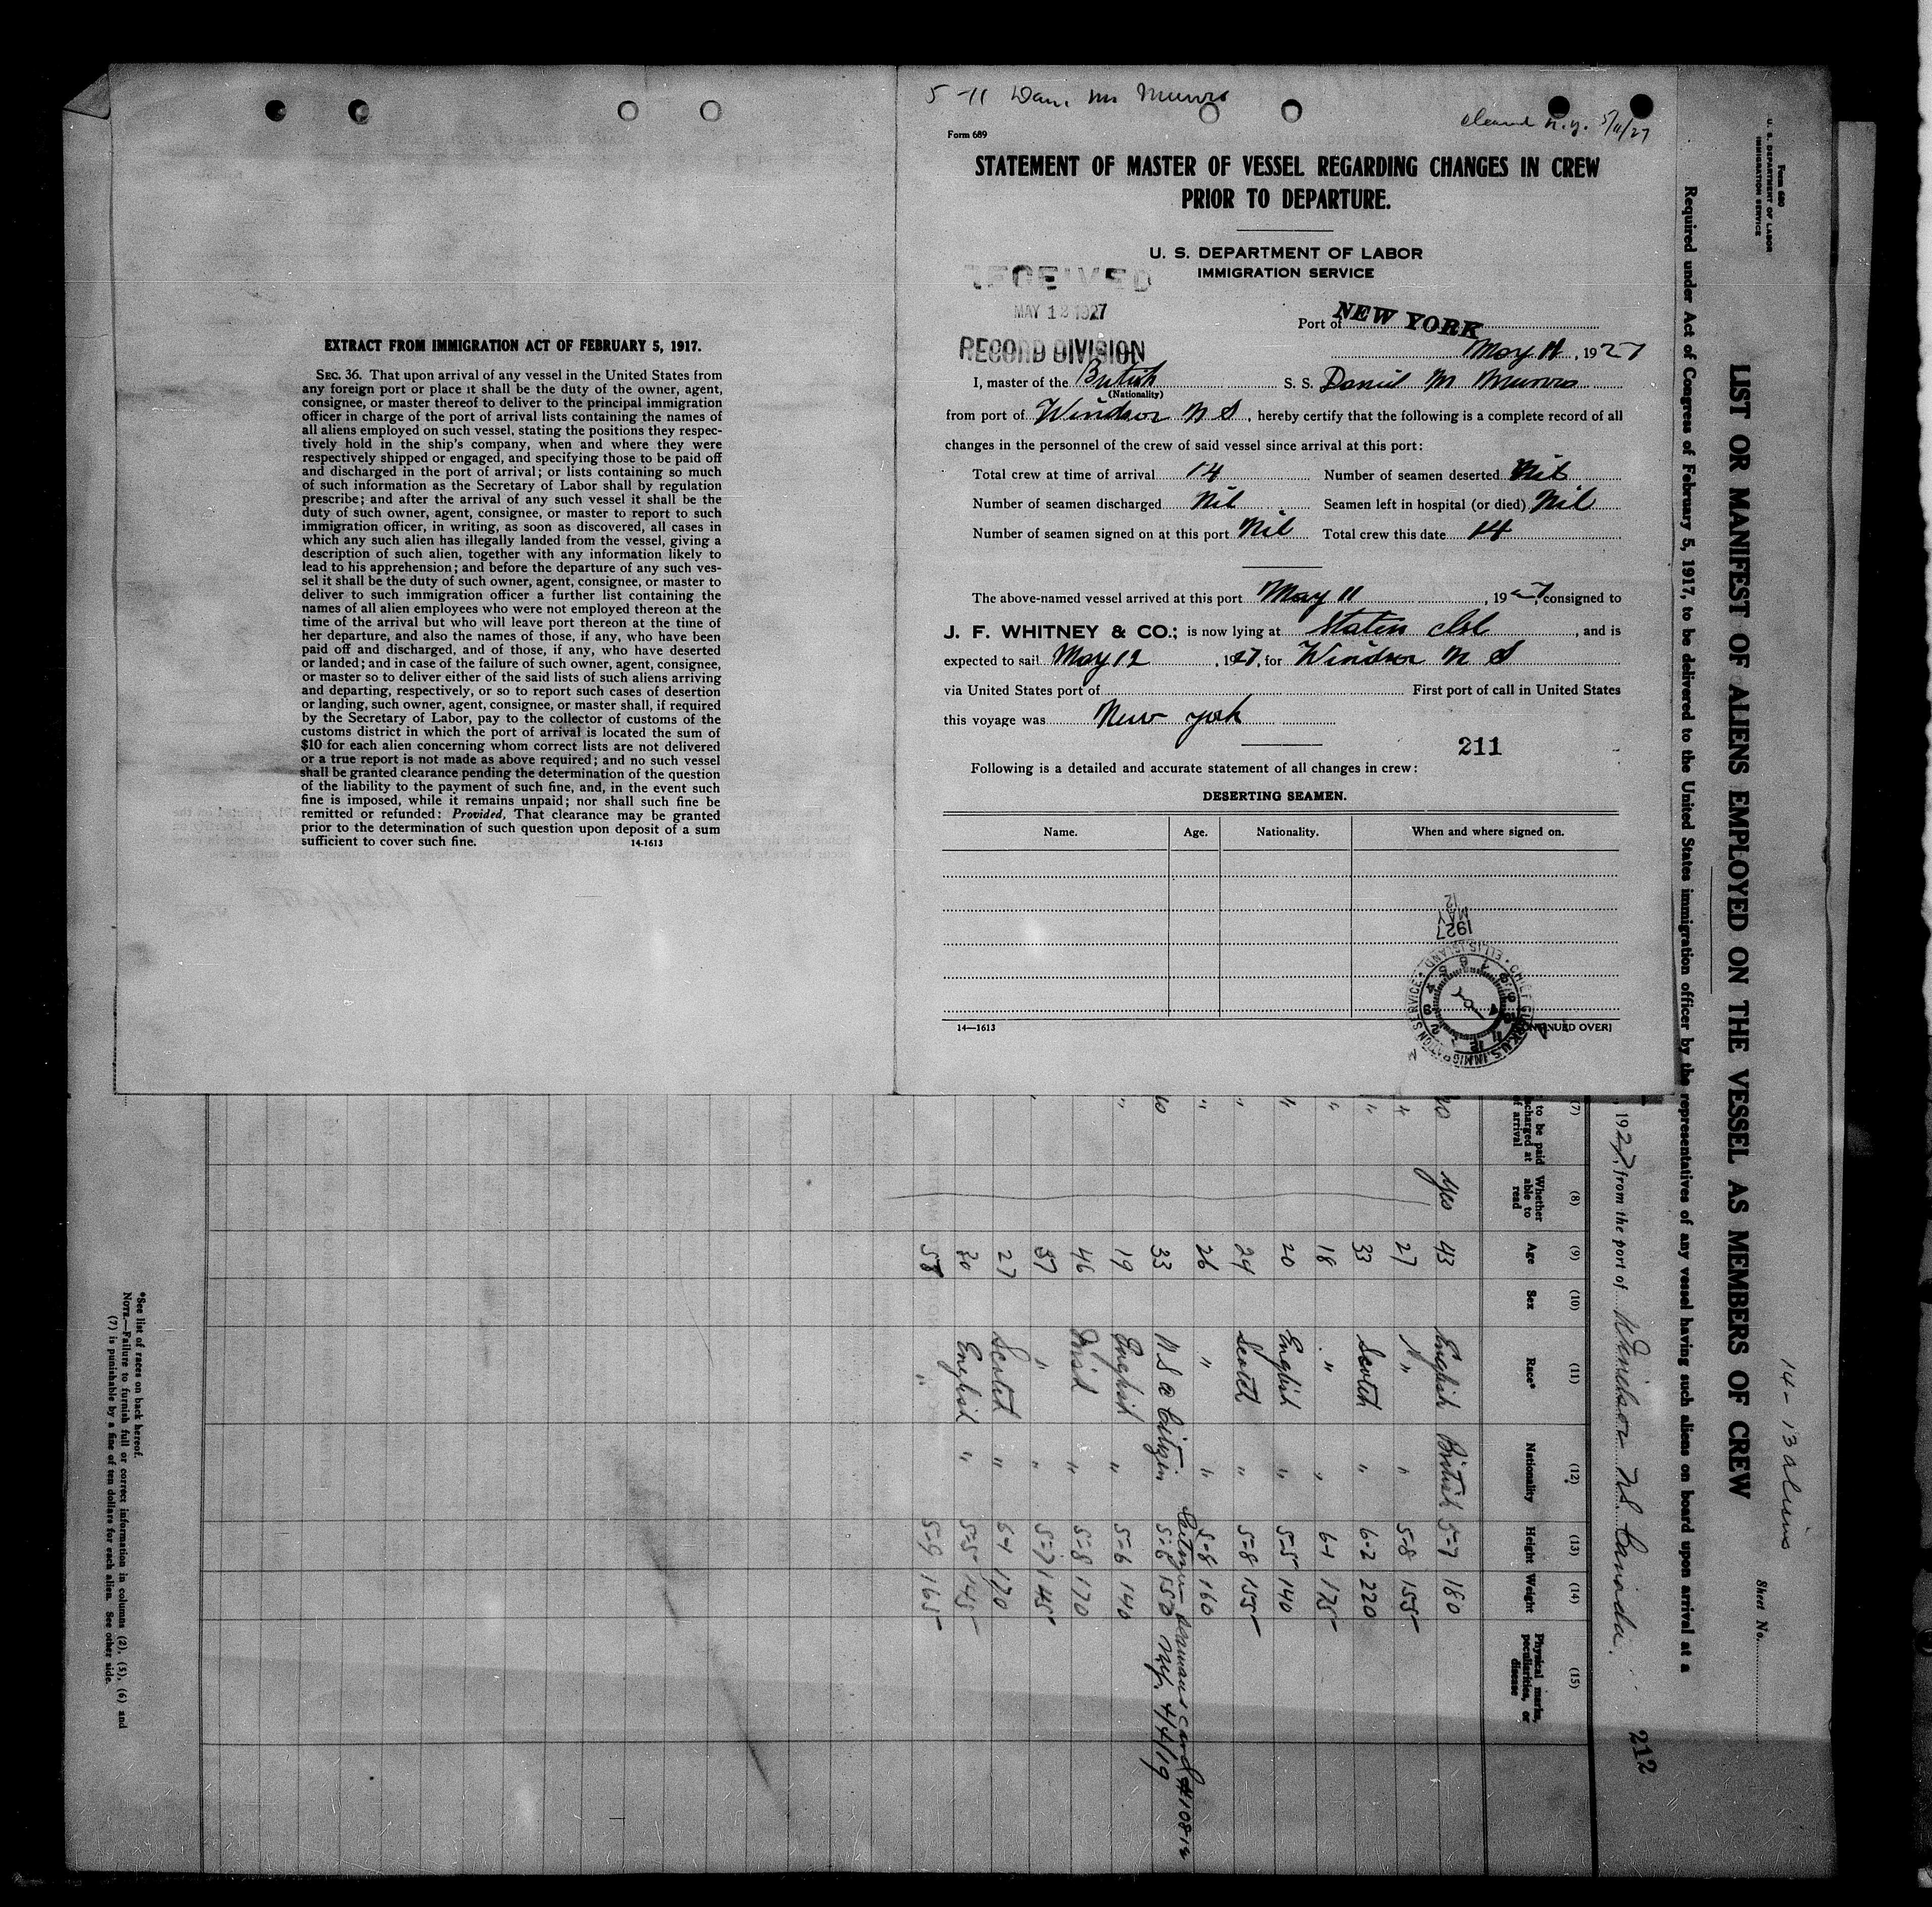 EXTRACT FROM IMMIGRATION ACT OF FEBRUARY 5, 1917.
SEC. 36. That upon arrival of any vessel in the United States from
any foreign port or place it shall be the duty of the owner, agent,
consignee, or master thereof to deliver to the principal immigration
officer in charge of the port of arrival lists containing the names of
all aliens employed on such vessel, stating the positions they respec-
tively hold in the ship's company, when and where they were
respectively shipped or engaged, and specifying those to be paid off
and discharged in the port of arrival; or lists containing so much
of such information as the Secretary of Labor shall by regulation
prescribe; and after the arrival of any such vessel it shall be the
duty of such owner, agent, consignee, or master to report to such
immigration officer, in writing, as soon as discovered, all cases in
which any such alien has illegally landed from the vessel, giving a
description of such alien, together with any information likely to
lead to his apprehension; and before the departure of any such ves-
sel it shall be the duty of such owner, agent, consignee, or master to
deliver to such immigration officer a further list containing the
names of all alien employees who were not employed thereon at the
time of the arrival but who will leave port thereon at the time of
her departure, and also the names of those, if any, who have been
paid off and discharged, and of those, if any, who have deserted
or landed; and in case of the failure of such owner, agent, consignee,
or master so to deliver either of the said lists of such aliens arriving
and departing, respectively, or so to report such cases of desertion
or landing, such owner, agent, consignee, or master shall, if required
by the Secretary of Labor, pay to the collector of customs of the
customs district in which the port of arrival is located the sum of
$10 for each alien concerning whom correct lists are not delivered
or a true report is not made as above required; and no such vessel
shall be granted clearance pending the determination of the question
of the liability to the payment of such fine, and, in the event such
fine is imposed, while it remains unpaid; nor shall such fine be
remitted or refunded: Provided, That clearance may be granted
prior to the determination of such question upon deposit of a sum
sufficient to cover such fine. 14-1613
5-11 Dan. M Munro
Cleared N.Y. 5/11/27
Form 689
STATEMENT OF MASTER OF VESSEL REGARDING CHANGES IN CREW
PRIOR TO DEPARTURE.
U. S. DEPARTMENT OF LABOR
IMMIGRATION SERVICE
RECEIVED
MAY 12 1927
RECORD DIVISION
Port of NEW YORK
May 11, 1927
I, master of the British S. S. Daniel M Munro
(Nationality)
from port of Windsor N S, hereby certify that the following is a complete record of all
changes in the personnel of the crew of said vessel since arrival at this port:
Total crew at time of arrival 14 Number of seamen deserted Nil
Number of seamen discharged Nil Seamen left in hospital (or died) Nil
Number of seamen signed on at this port Nil Total crew this date 14
The above-named vessel arrived at this port May 11, 1927, consigned to
J. F. WHITNEY & CO.; is now lying at Staten Isl, and is
expected to sail May 12, 1927, for Windsor N S
via United States port of First port of call in United States
this voyage was New York
211
Following is a detailed and accurate statement of all changes in crew:
DESERTING SEAMEN.
Name. Age. Nationality. When and where signed on.
MAY 12
1927
CHIEF CLERK U.S. IMMIGRATION SERVICE • ELLIS ISLAND
14—1613 [CONTINUED OVER]
Form 680
U. S. DEPARTMENT OF LABOR
IMMIGRATION SERVICE
14 - 13 aliens
Sheet No.
LIST OR MANIFEST OF ALIENS EMPLOYED ON THE VESSEL AS MEMBERS OF CREW
Required under Act of Congress of February 5, 1917, to be delivered to the United States immigration officer by the representatives of any vessel having such aliens on board upon arrival at a
, 1927, from the port of Windsor NS Canada.
212
(7) (8) (9) (10) (11) (12) (13) (14) (15)
to be paid
charged at
of arrival
Whether able to read
Age
Sex
Race*
Nationality
Height
Weight
Physical marks, peculiarities, or disease
no yes 43 English British 5-7 180
" 27 " " 5-8 155
" 33 Scotch " 6-2 220
" 18 " " 6-1 175
" 20 English " 5-5 140
" 24 Scotch " 5-8 155
" 26 " " 5-8 160
no 33 U S @ Citizen 5-6 150
Seamans card #10816
N.Y. 4/4/19
" 19 English " 5-6 140
46 Irish " 5-8 170
37 " " 5-7 145
27 Scotch " 6-1 170
30 English " 5-5 145
58 " 5-9 165
*See list of races on back hereof.
NOTE.—Failure to furnish full or correct information in columns (2), (5), (6) and
(7) is punishable by a fine of ten dollars for each alien. See other side.